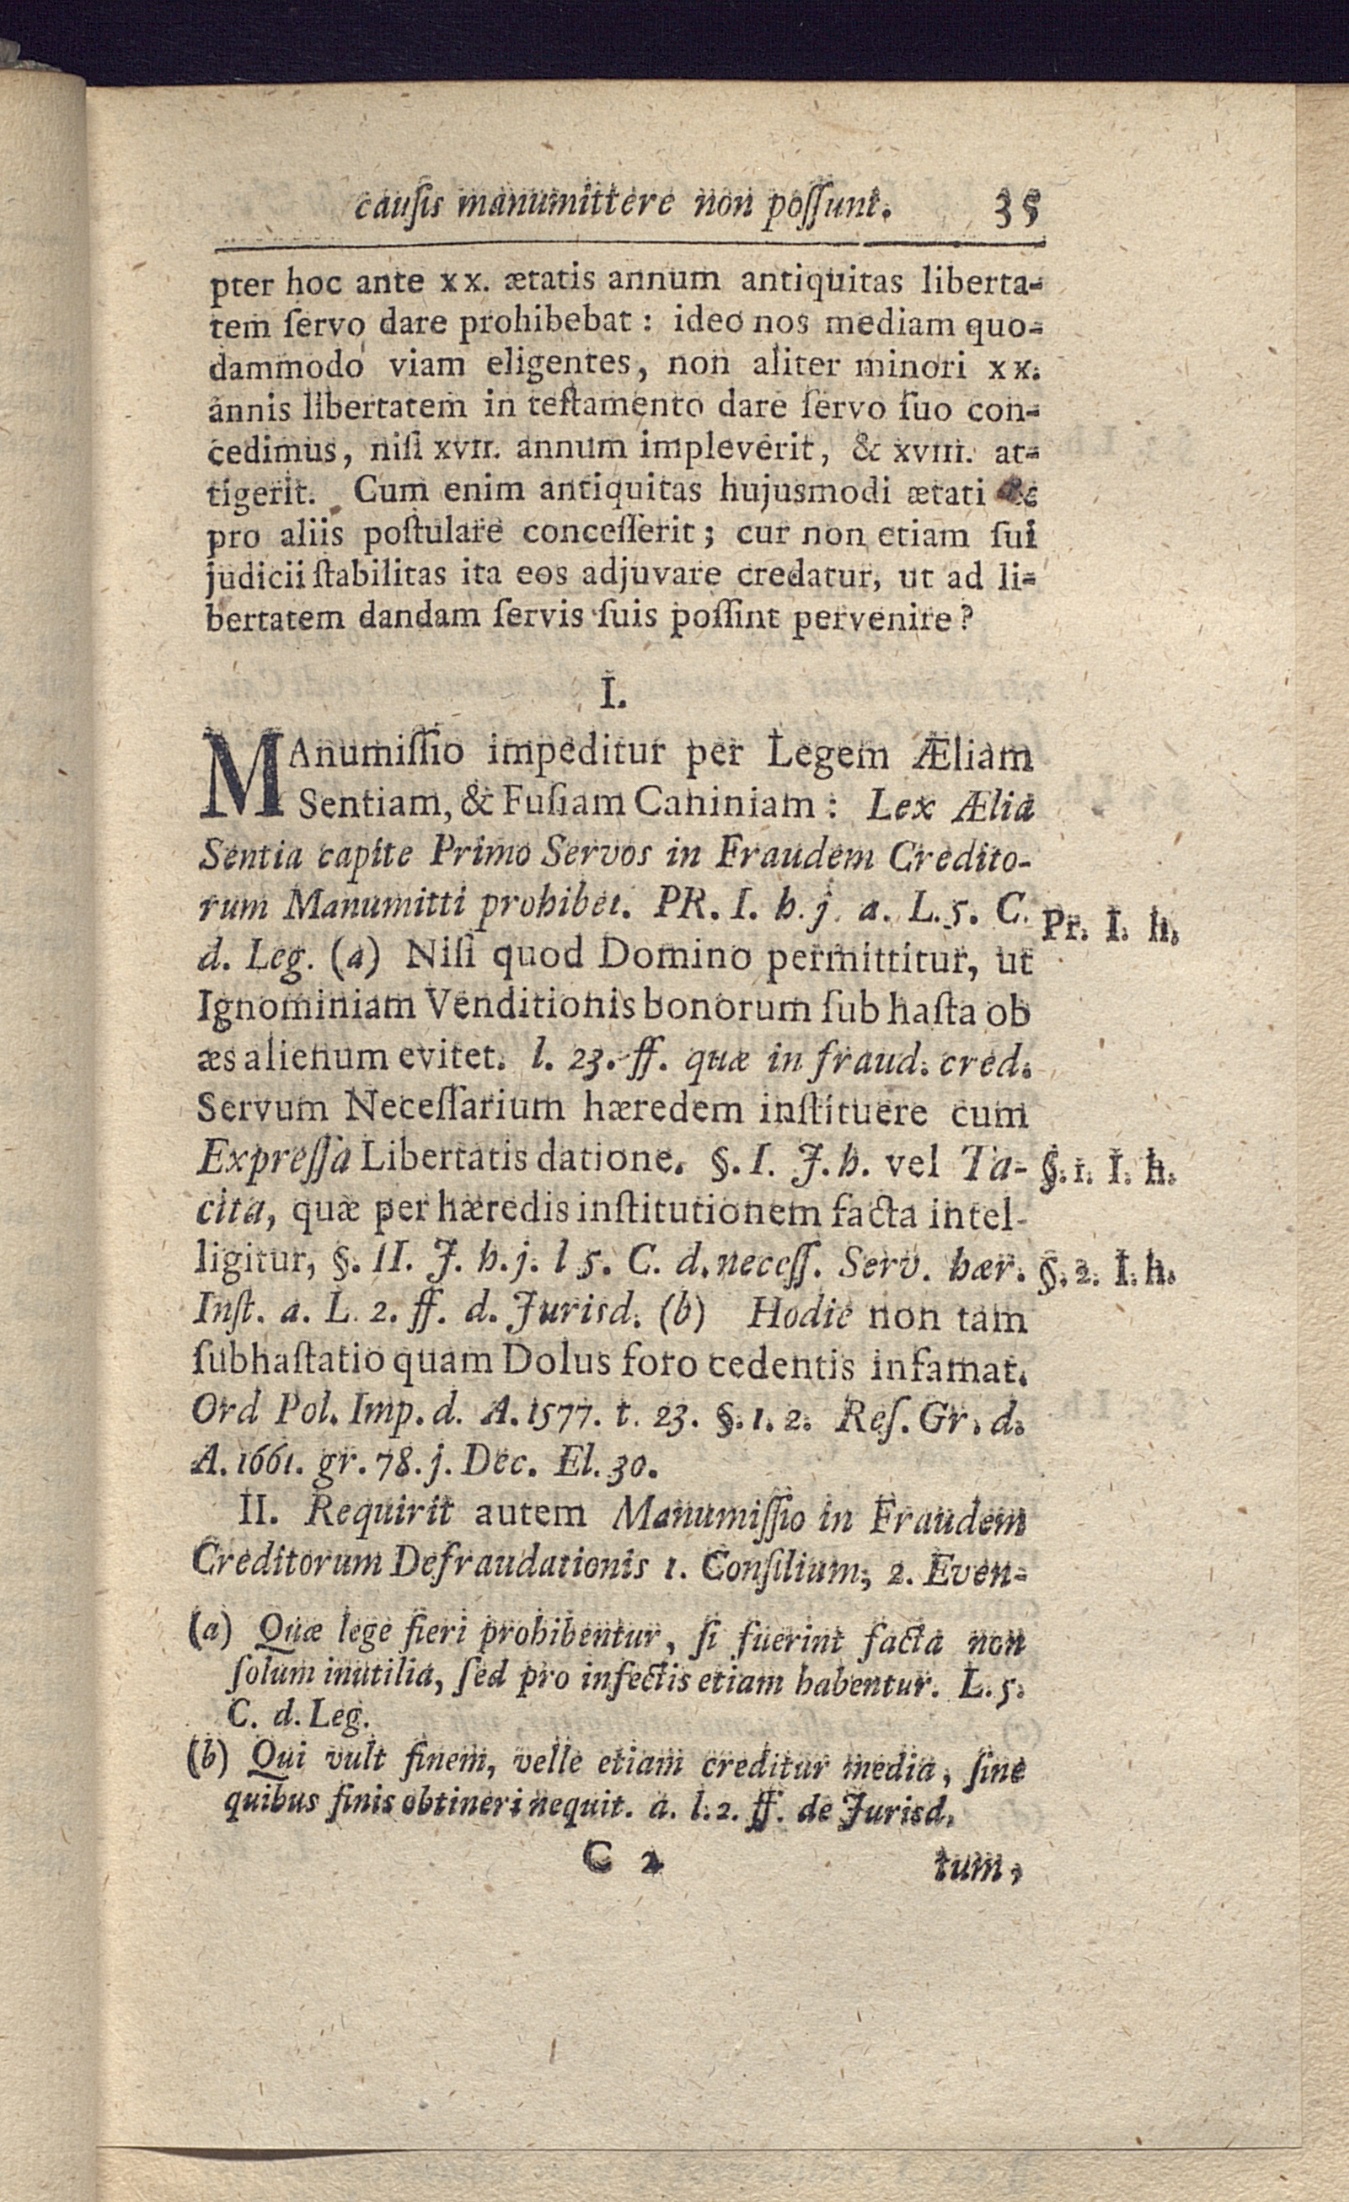 cauſis manumittere non poſſunt. 35
pter hoc ante xx. ætatis annum antiquitas liberta-
tem ſervo dare prohibebat: ideo nos mediam quo-
dammodo viam eligentes, non aliter minori xx.
annis libertatem in teſtamento dare ſervo ſuo con-
cedimus, niſi xvii. annum impleverit, & xviii. at-
tigerit. Cum enim antiquitas hujusmodi ætati &
pro aliis poſtulare conceſſerit; cur non etiam ſui
judicii ſtabilitas ita eos adjuvare credatur, ut ad li-
bertatem dandam ſervis ſuis poſſint pervenire?
I.
MAnumiſſio impeditur per Legem Æliam
Sentiam, & Fuſiam Caniniam: Lex Ælia
Sentia capite Primo Servos in Fraudem Credito-
rum Manumitti prohibet. PR. I. h. j. a. L. 5. C.
Pr. I. h.
d. Leg. (a) Niſi quod Domino permittitur, ut
Ignominiam Venditionis bonorum ſub haſta ob
æs alienum evitet. l. 23. ff. quæ in fraud. cred.
Servum Neceſſarium hæredem inſtituere cum
Expreſſa Libertatis datione. §. I. J. h. vel Ta-
§. 1. I. h.
cita, quæ per hæredis inſtitutionem facta intel-
ligitur, §. II. J. h. j. l 5. C. d. neceſſ. Serv. hær.
§. 2. I. h.
Inſt. a. L. 2. ff. d. Jurisd. (b) Hodie non tam
ſubhaſtatio quam Dolus foro cedentis infamat.
Ord Pol. Imp. d. A. 1577. t. 23. §. 1. 2. Reſ. Gr. d.
A. 1661. gr. 78. j. Dec. El. 30.
II. Requirit autem Manumiſſio in Fraudem
Creditorum Defraudationis 1. Conſilium, 2. Even-
(a) Quæ lege fieri prohibentur, ſi fuerint facta non
ſolum inutilia, ſed pro infectis etiam habentur. L. 5.
C. d. Leg.
(b) Qui vult finem, velle etiam creditur media, ſine
quibus finis obtineri nequit. a. l. 2. ff. de Jurisd.
C 2 tum,